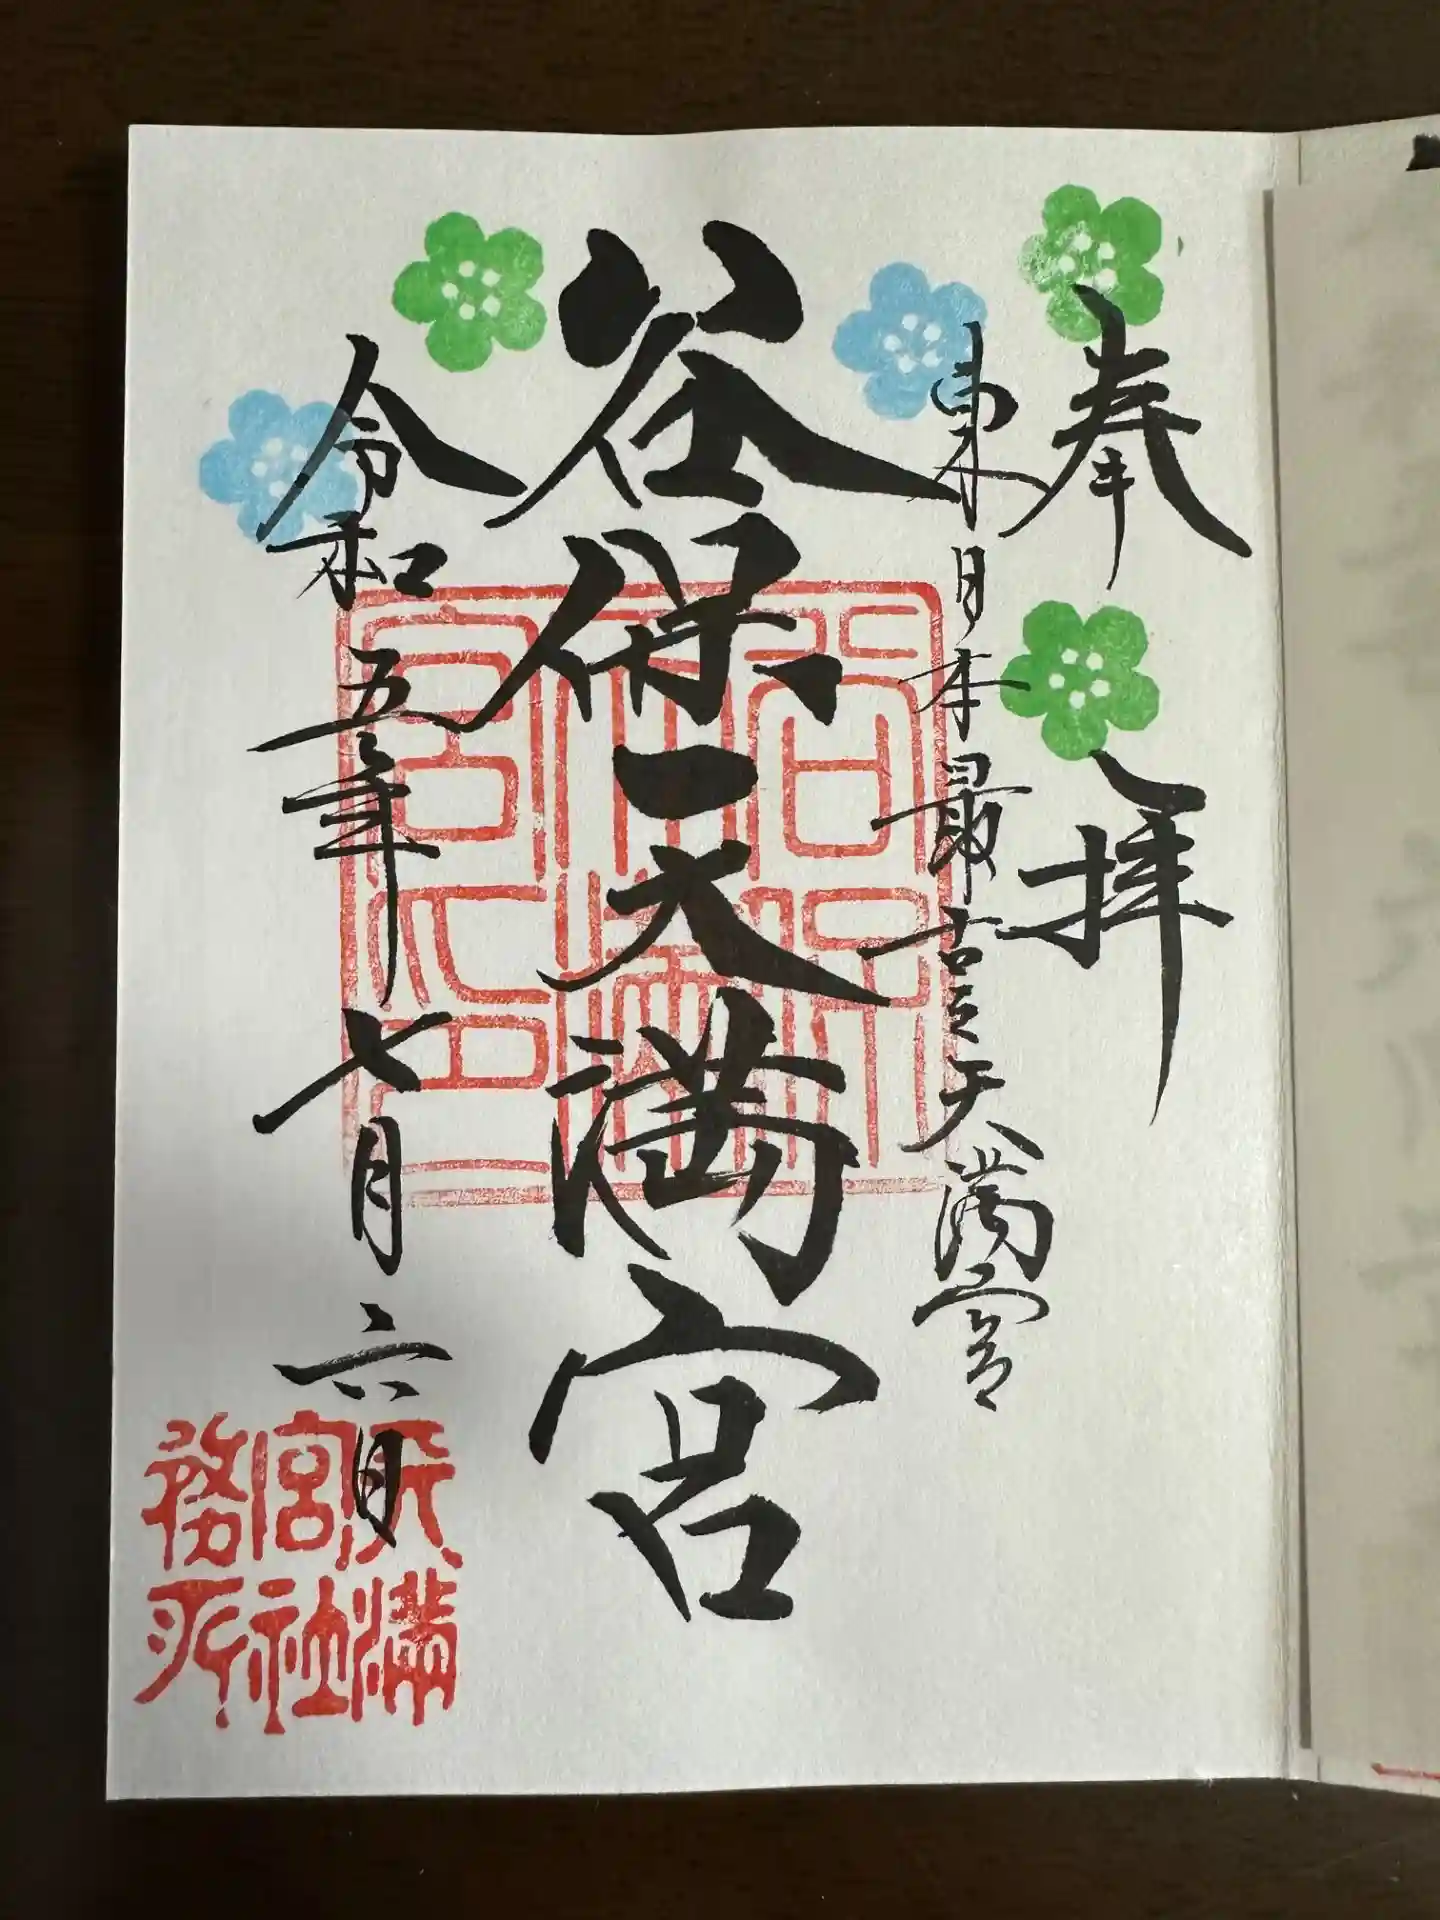 奉拝
東日本最古之天満宮
谷保天満宮
令和五年七月六日
天満宮社務所